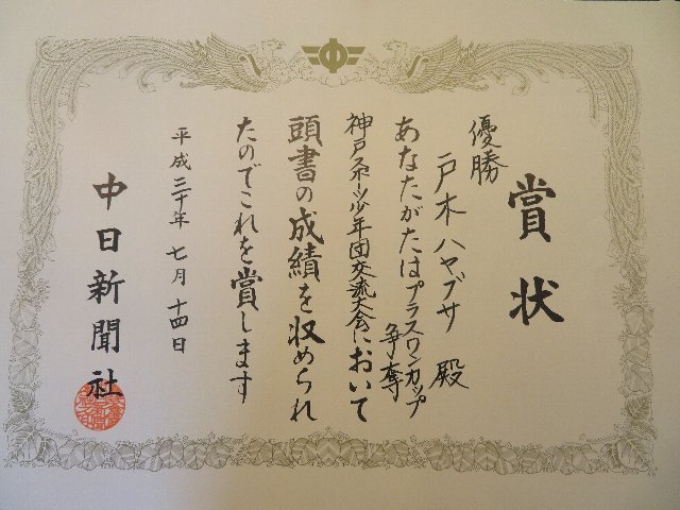 賞状
優勝
戸木ハヤブサ殿
あなたがたはプラスワンカップ争奪
神戸スポーツ少年団交流大会において
頭書の成績を収められ
たのでこれを賞します
平成三十年七月十四日
中日新聞社